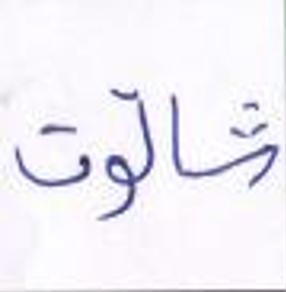 شالّوت